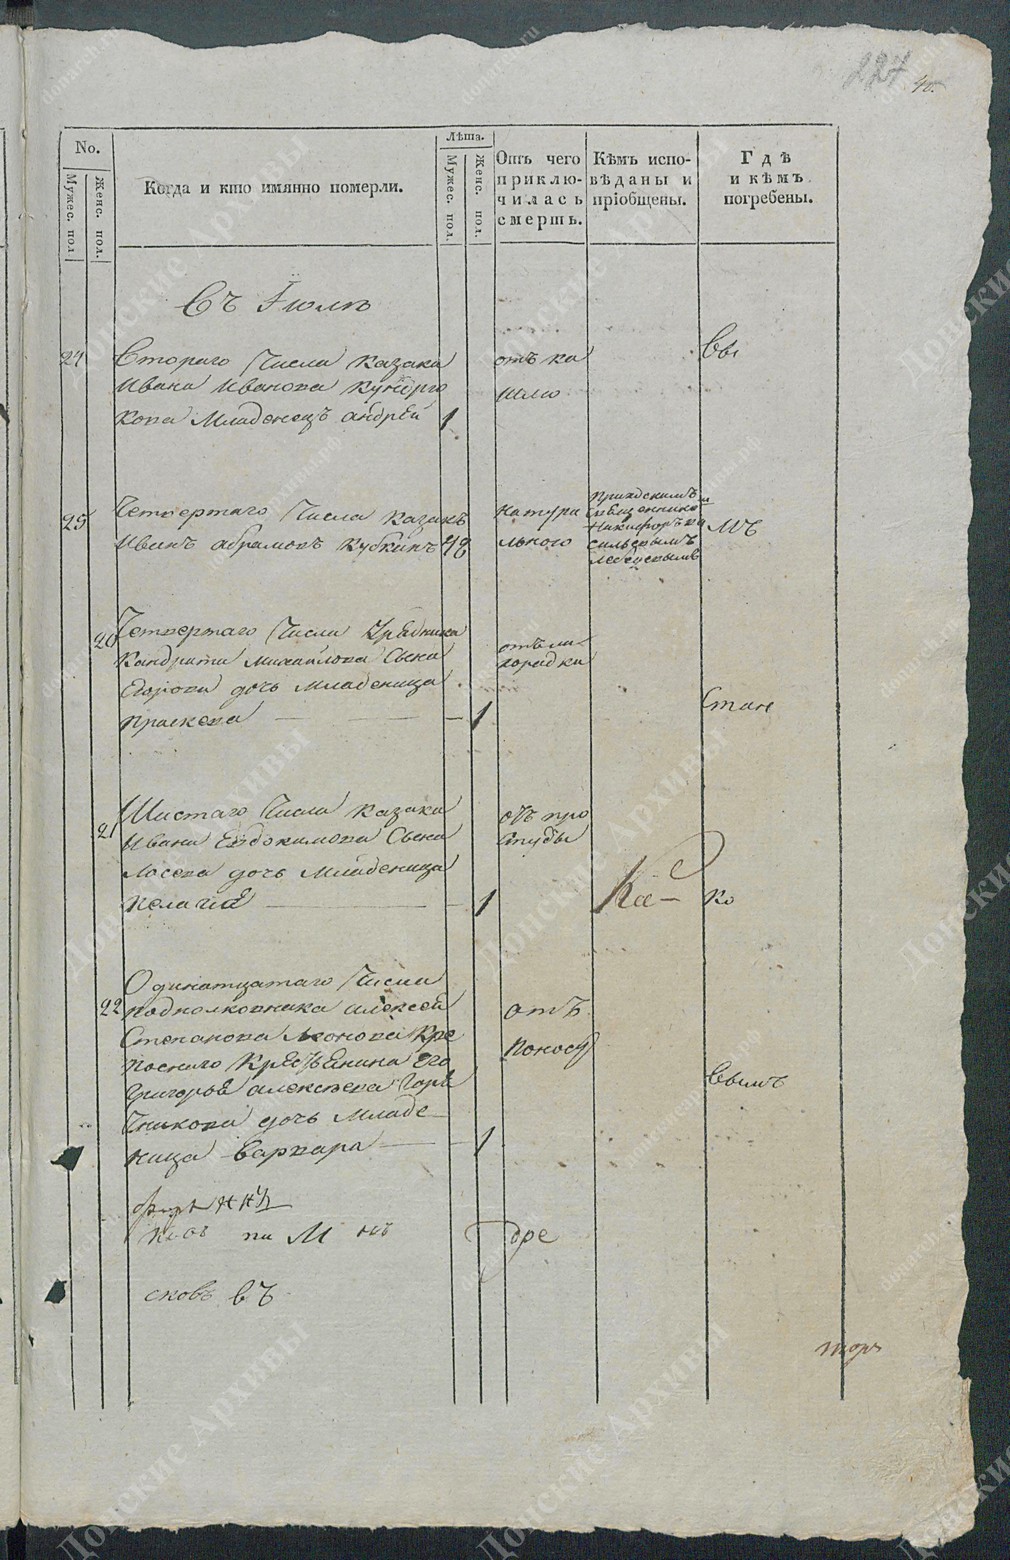 227
40.
No.
Мужес. пол
Женс. пол.
Когда и кто имянно померли.
Лѣта.
Мужес. пол.
Женс. пол.
Отъ чего
приклю-
чилась
смерть.
Кѣмъ испо-
вѣданы и
пріобщены.
Гдѣ
и кѣмъ
погребены.
Въ Іюлѣ
24 Втораго Числа казака
Ивана Иванова
кова Младенецъ андрей 1
отъ ка
шлю
Вы
25 Четвертаго Числа казакъ
Иванъ абрамовъ Кубкинъ 48
натура
льного
приходскимъ
священнико
Никифоръ ва
сильевымъ
лебедевымъ
мъ
20 Четвертаго Числа Урядника
Кандрата михайлова Сына
Егорова дочь Младеница
праскева 1
отъ ли
хорадки
стан
21 Шистаго Числа казака
Ивана Евдокимова Сына
Лосева дочь Младеница
пелагиа 1
отъ про
студы
ко
22 Одинатцатаго Числа
подполковника алексея
Степанова Леонова кре
посного крестьянина его
Григорья алексеева
дочь Младе
ница варвара 1
отъ
поносу
вымъ
на М
дре
сковъ въ